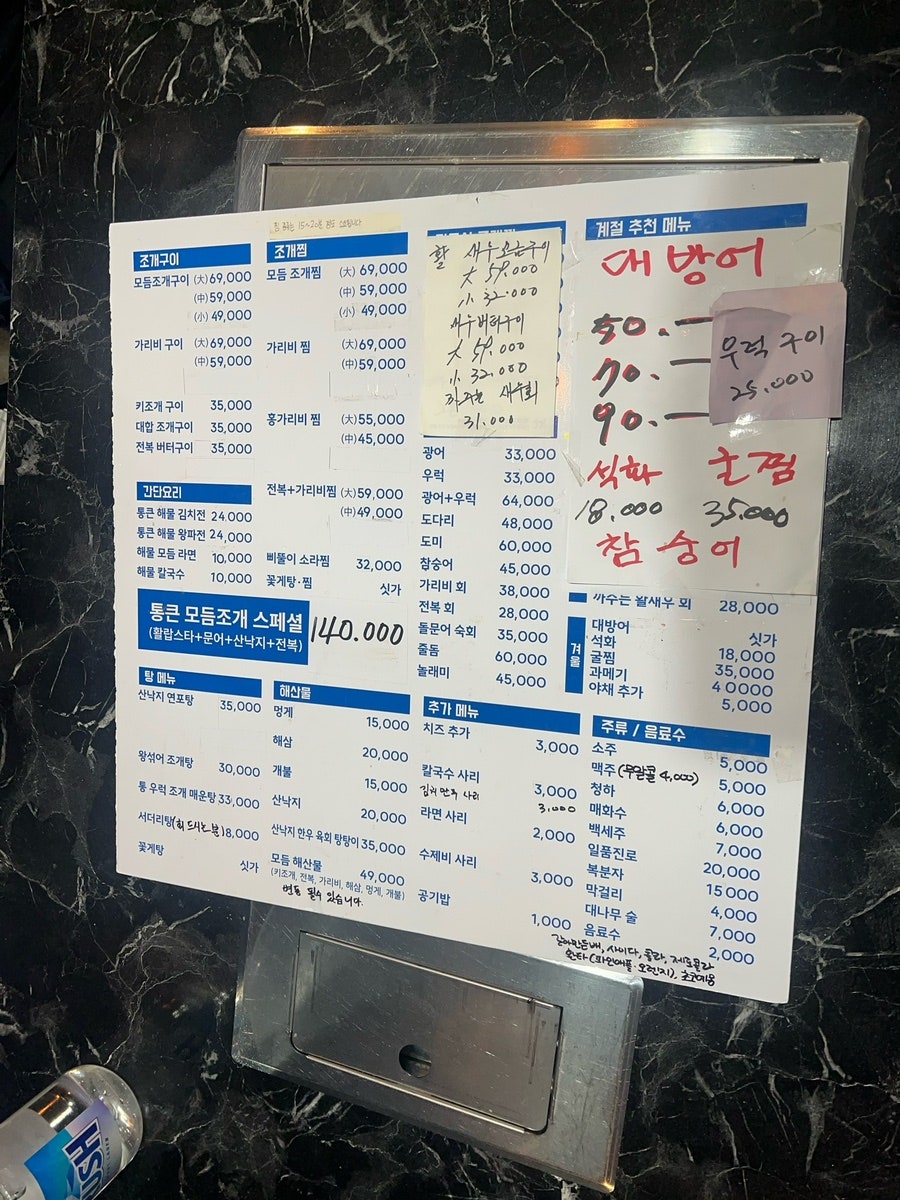 찜 종류는 15~20분 정도 소요됩니다
조개구이
모듬조개구이 (大) 69,000
(中) 59,000
(小) 49,000
가리비 구이 (大) 69,000
(中) 59,000
키조개 구이 35,000
대합 조개구이 35,000
전복 버터구이 35,000
간단요리
통큰 해물 김치전 24,000
통큰 해물 왕파전 24,000
해물 모듬 라면 10,000
해물 칼국수 10,000
조개찜
모듬 조개찜 (大) 69,000
(中) 59,000
(小) 49,000
가리비 찜 (大) 69,000
(中) 59,000
홍가리비 찜 (大) 55,000
(中) 45,000
전복+가리비찜 (大) 59,000
(中) 49,000
삐뚤이 소라찜 32,000
꽃게탕·찜 싯가
통큰 모듬조개 스페셜
(활랍스타+문어+산낙지+전복)
140.000
활 새우소금구이
大 59.000
小 32.000
새우버터구이
大 59.000
小 32.000
까주는 새우회
31.000
광어 33,000
우럭 33,000
광어+우럭 64,000
도다리 48,000
도미 60,000
참숭어 45,000
가리비 회 38,000
전복 회 28,000
돌문어 숙회 35,000
줄돔 60,000
놀래미 45,000
계절 추천 메뉴
대방어
50.—
70.—
90.—
우럭 구이
25.000
석화 굴찜
18.000 35.000
참숭어
까주는 왕새우 회 28,000
겨울
대방어 싯가
석화 18,000
굴찜 35,000
과메기 40000
야채 추가 5,000
탕 메뉴
산낙지 연포탕 35,000
왕섞어 조개탕 30,000
통 우럭 조개 매운탕 33,000
서더리탕(회 드시는분) 8,000
꽃게탕 싯가
해산물
멍게 15,000
해삼 20,000
개불 15,000
산낙지 20,000
산낙지 한우 육회 탕탕이 35,000
모듬 해산물 49,000
(키조개, 전복, 가리비, 해삼, 멍게, 개불)
변동 될수 있습니다.
추가 메뉴
치즈 추가 3,000
칼국수 사리 3,000
김치 만두 사리 3,000
라면 사리 2,000
수제비 사리 3,000
공기밥 1,000
주류 / 음료수
소주 5,000
맥주 (무알콜 4,000) 5,000
청하 6,000
매화수 6,000
백세주 7,000
일품진로 20,000
복분자 15000
막걸리 4,000
대나무 술 7,000
음료수 2,000
갈아만든배, 사이다, 콜라, 제로콜라
환타(파인애플·오렌지),